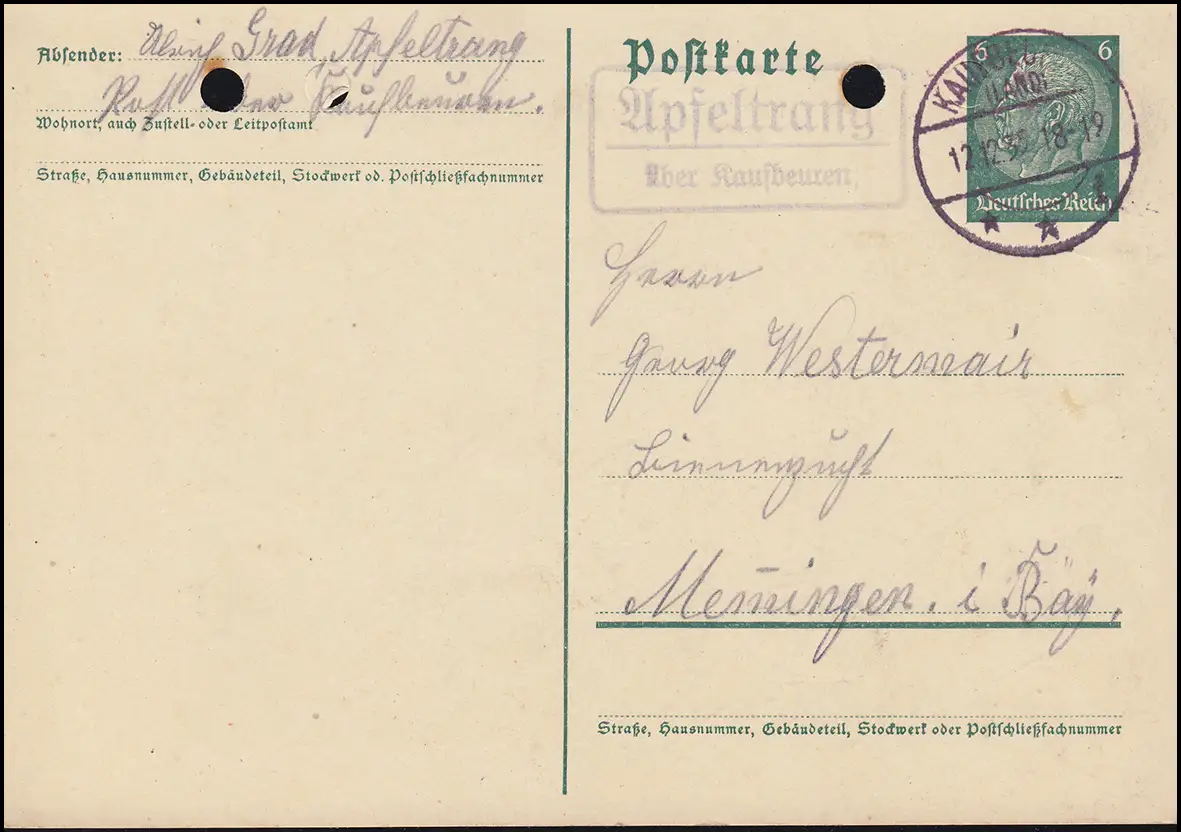 Absender: Ulrich Grad, Apfeltrang
Post über Kaufbeuren.
Wohnort, auch Zustell- oder Leitpostamt
Straße, Hausnummer, Gebäudeteil, Stockwerk od. Postschließfachnummer
Postkarte
Apfeltrang
über Kaufbeuren
6 6
(LAND)
12.12.35 18-19
Deutsches Reich
Herrn
Georg Westermair
Bienenzucht
Memingen. i Bay,
Straße, Hausnummer, Gebäudeteil, Stockwerk oder Postschließfachnummer